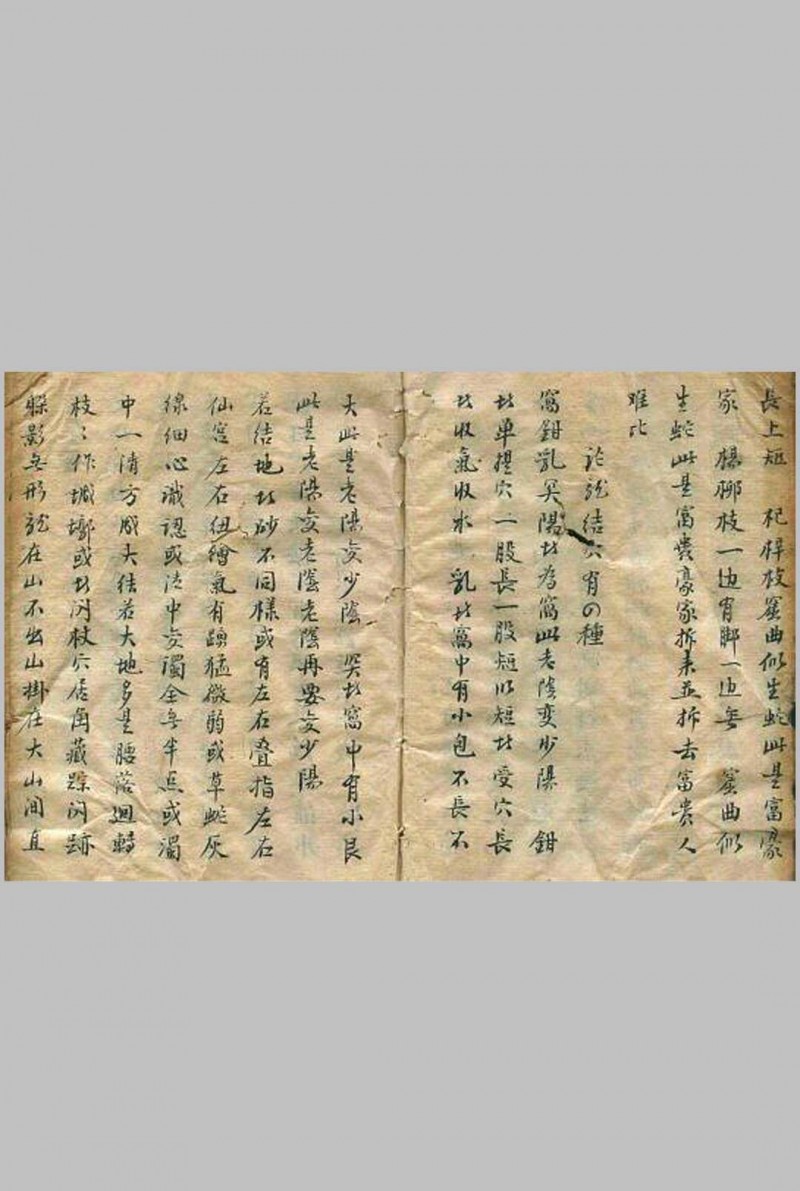 長上短　杞梓枝窟曲似生蛇此是富豪
家　楊柳枝一边有脚一边無　窟曲似
生蛇此是富貴豪家拆来並拆去富貴人
难比
論龍结穴有の種
窩鉗乳突陽
为窩此老陰变少陽　鉗
单提穴一股長一股短以短
受穴長
收氣收水　乳
窩中有小包不長不
大此是老陽变少陰　突
窩中有小艮
此是老陽变老陰老陰再要变少陽
若结地
砂不同樣或有左右叠指左右
仙宫左右
氣有踴猛微弱或草蛇灰
線細心識認或清中变濁全無半点或濁
中一清方成大结若大地多是腰落廻轉
枝〻作城墎或
閃杖穴居角藏踪閃跡
躲影無形龍在山不出山掛在大山间直